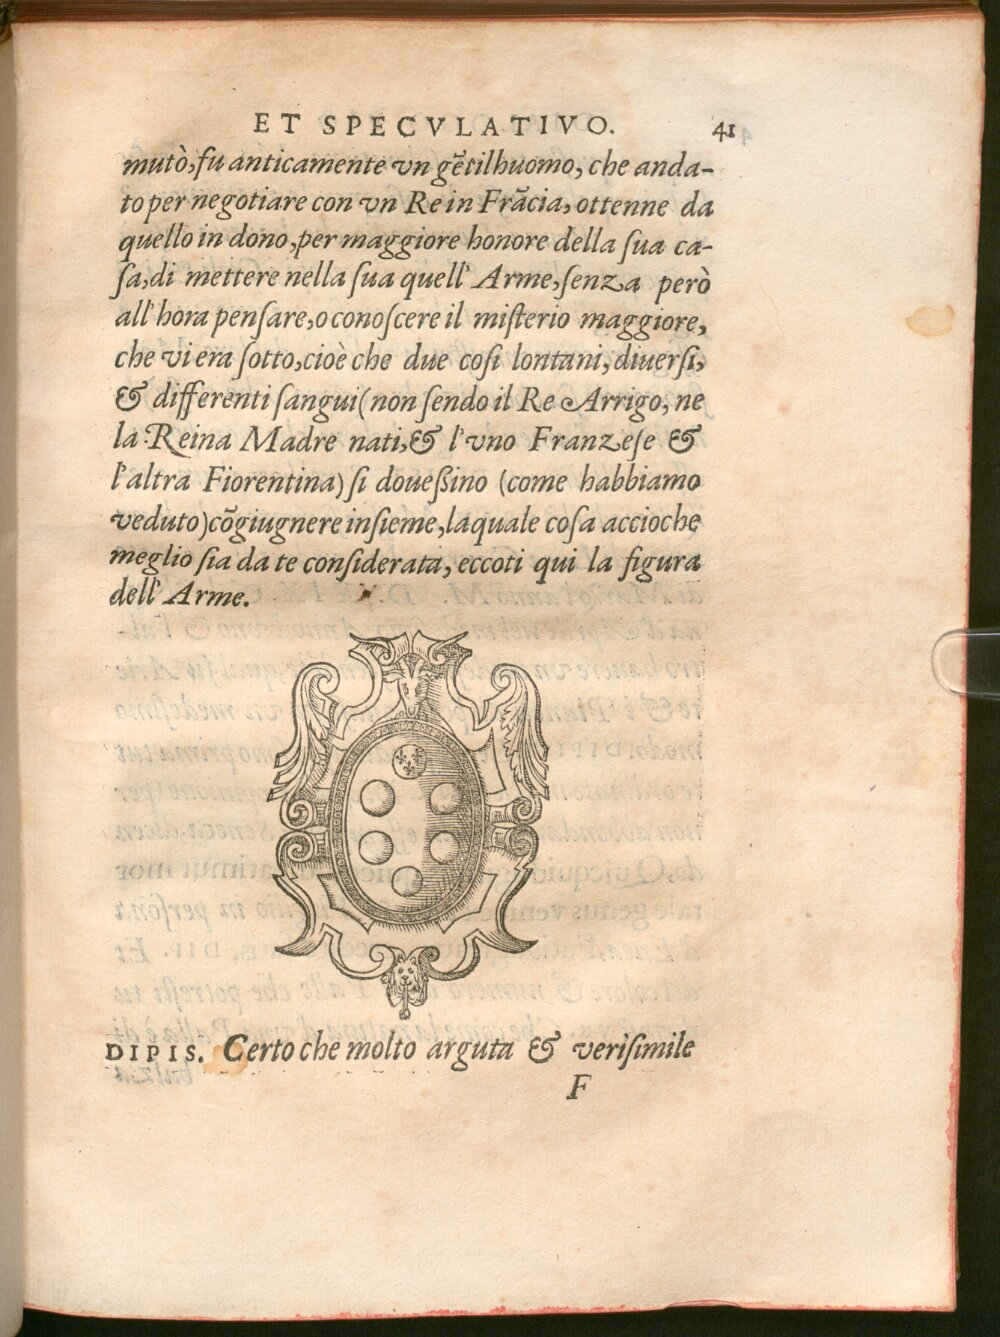 ET SPECVLATIVO. 41
mutò, fu anticamente vn gẽtilhuomo, che anda-
to per negotiare con vn Re in Frãcia, ottenne da
quello in dono, per maggiore honore della ſua ca-
ſa, di mettere nella ſua quell' Arme, ſenza però
all' hora penſare, o conoſcere il miſterio maggiore,
che vi era ſotto, cioè che due coſi lontani, diuerſi,
& differenti ſangui (non ſendo il Re Arrigo, ne
la Reina Madre nati, & l'vno Franzeſe &
l'altra Fiorentina) ſi doueßino (come habbiamo
veduto) cõgiugnere inſieme, la quale coſa accioche
meglio ſia da te conſiderata, eccoti qui la figura
dell' Arme.
DIPIS. Certo che molto arguta & veriſimile
F